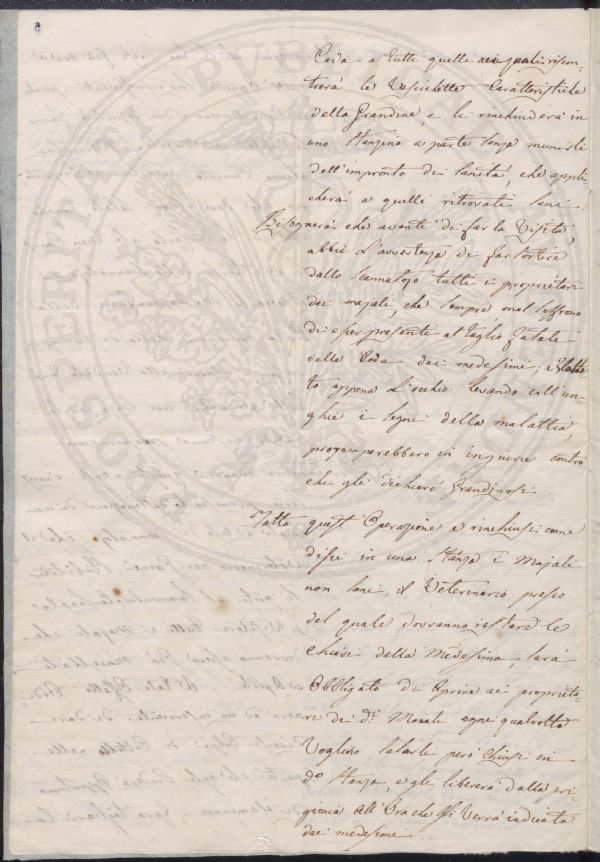 Coda a tutti quelli nei quali riscon-
trerà le Vescichette Caratteristiche
della Grandine, e li rinchiuderà in
uno Stanzino a parte senza munirli
dell'impronto di Sanità, che appli-
cherà a quelli ritrovati Sani.
Bisognerà che avanti di far la Visita,
abbia l'avvertenza di far sortire
dallo Scannatojo tutti i proprietari
dei majali, che sempre mal soffrono
di esser presenti al taglio fatale
della Coda dai medesimi; e
to appena l'occhio levando coll'un-
ghia i segni della malattia,
promomperebbero in ingiurie contro
chi gli dichiarò Grandinosi.
Fatta quest'Operazione e rinchiusi come
dissi in una Stanza i Majali
non Sani, il Veterinario presso
del quale dovranno restare le
Chiavi della Medesima, sarà
Obbligato di Aprire ai proprieta-
ri de di. Maiali ogni qualvolta
Voglino Salarli però Chiusi in
da. Stanza, e gli libererà dalla pri-
gionia all'Ora che gli Verrà indicata
dai medesimi